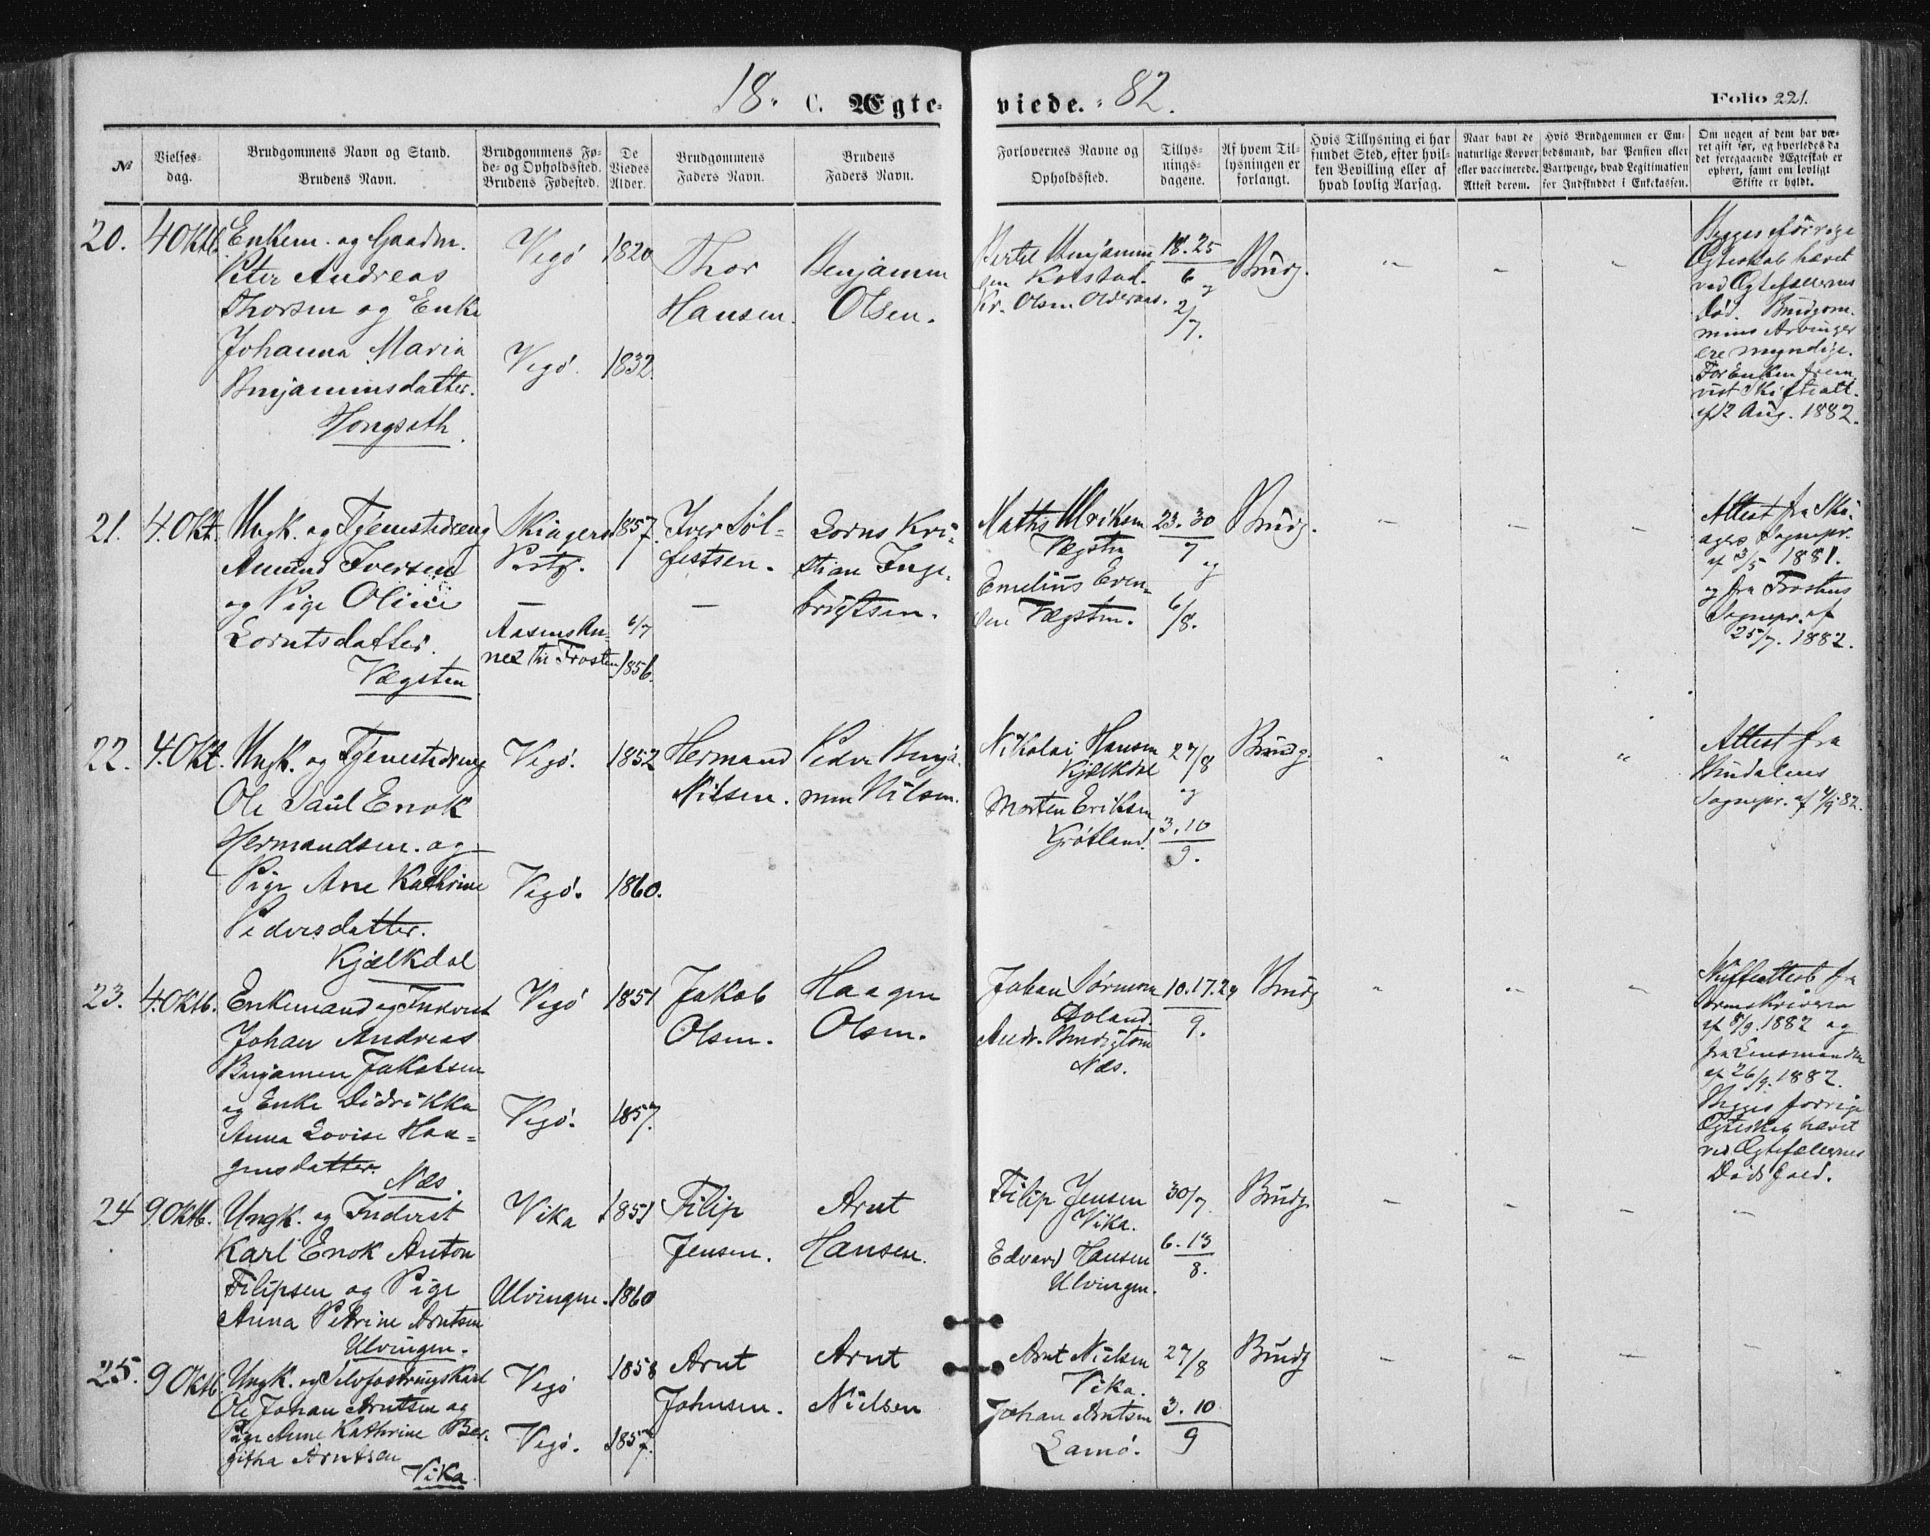 18. C. Ægteviede. 82. Folio 221.
№
Vielses-
dag.
Brudgommens Navn og Stand.
Brudens Navn.
Brudgommens Fø-
de- og Opholdssted.
Brudens Fødested.
De
Viedes
Alder.
Brudgommens
Faders Navn.
Brudens
Faders Navn.
Forlovernes Navne og
Opholdssted.
Tillys-
nings-
dagene.
Af hvem Til-
lysningen er
forlangt.
Hvis Tillysning ei har
fundet Sted, efter hvil-
ken Bevilling eller af
hvad lovlig Aarsag.
Naar havt de
naturlige Kopper
eller vaccinerede.
Attest derom.
Hvis Brudgommen er Em-
bedsmand, har Pension eller
Vartpenge, hvad Legitimation
for Indskuddet i Enkekassen.
Om nogen af dem har væ-
ret gift før, og hvorledes da
det foregaaende Ægteskab er
ophørt, samt om lovligt
Skifte er holdt.
20. 4 Oktb.
Enkem. og Gaadm.
Peter Andreas
Thorsen og Enke
Johanna Maria
Benjaminsdatter.
Hongseth.
Vegø 1820
Vegø. 1832.
Thor
Hansen.
Benjamin
Olsen.
Bertel Benjamin
sen Kolstad.
Kr. Olsen Olderaas.
18. 25
6
og
2/7.
Brudg.
" " "
Begges forrige
Ægteskab hævet
ved Ægtefællernes
Død. Brudgom-
mens Arvinger
ere myndige.
For Enken frem-
vist Skifteatt.
af 2 Aug. 1882.
21. 4. Okt.
Ungk. og Tjenestedreng
Amund Iversen
og Pige Oline
Lorntsdatter.
Vægsten
Skiagers
Prstg.
Aasens An-
nex til Frosten
1857.
6/7
1856.
Iver Søl-
festsen.
Lorns Kri-
stian Inge-
brigtsen.
Maths Ulriksen
Vægsten
Emelius Even-
sen Vægsten.
23. 30
7
og
6/8.
Brudg.
Attest fra Ski-
agers Sognepr.
af 3/5 1881.
og fra Frostens
Sognepr. af
25/7. 1882.
22. 4. Okt.
Ungk. og Tjenestedreng
Ole Paul Enok
Hermandsen. og
Pige Ane Kathrine
Pedersdatter.
Kjælkdal
Vegø. 1852
Vegø. 1860.
Hermand
Nilsen.
Peder Benja-
min Nilsen.
Nikolai Hansen
Kjælkdal
Morten Eriksen
Grøtland.
27/8
og
3. 10
9.
Brudg.
Attest fra
Bindalens
Sognepr. af 4/9. 82.
23. 4. Oktb.
Enkemand og Inderst
Johan Andreas
Benjamen Jakobsen
og Enke Didrikka
Anna Lovise Haa-
gensdatter.
Næs.
Vegø 1851
Vegø. 1857.
Jakob
Olsen.
Haagen
Olsen.
Johan Sørensen
Andr. Bendigtsen
Næs.
10. 17. 24
9.
Brudg
Skifteattest fra
Sorenskriveren
af 8/9. 1882 og
fra Lensmanden
af 26/9. 1882.
Begges forrige
Ægteskab hævet
ved Ægtefællernes
Dødsfald.
24 9. Oktb.
Ungk. og Inderst
Karl Enok Anton
Filipsen og Pige
Anna Petrine Arntsen
Ulvingen.
Vika 1851
Ulvingen. 1860
Filip
Jensen.
Arnt
Hansen.
Filip Jensen
Vika.
Edvard Hansen
Ulvingen.
30/7.
6. 13
8.
Brudg
25. 9 Oktb.
Ungk. og Selvfostringskarl
Ole Johan Arntsen og
Pige Anne Kathrine Ber-
githa Arntsen
Vika
Vegø 1858
Vegø. 1857.
Arnt
Johnsen.
Arnt
Nielsen
Arnt Nielsen
Vika.
Johan Arntsen
Lamø.
27/8
3. 10
9
Brudg